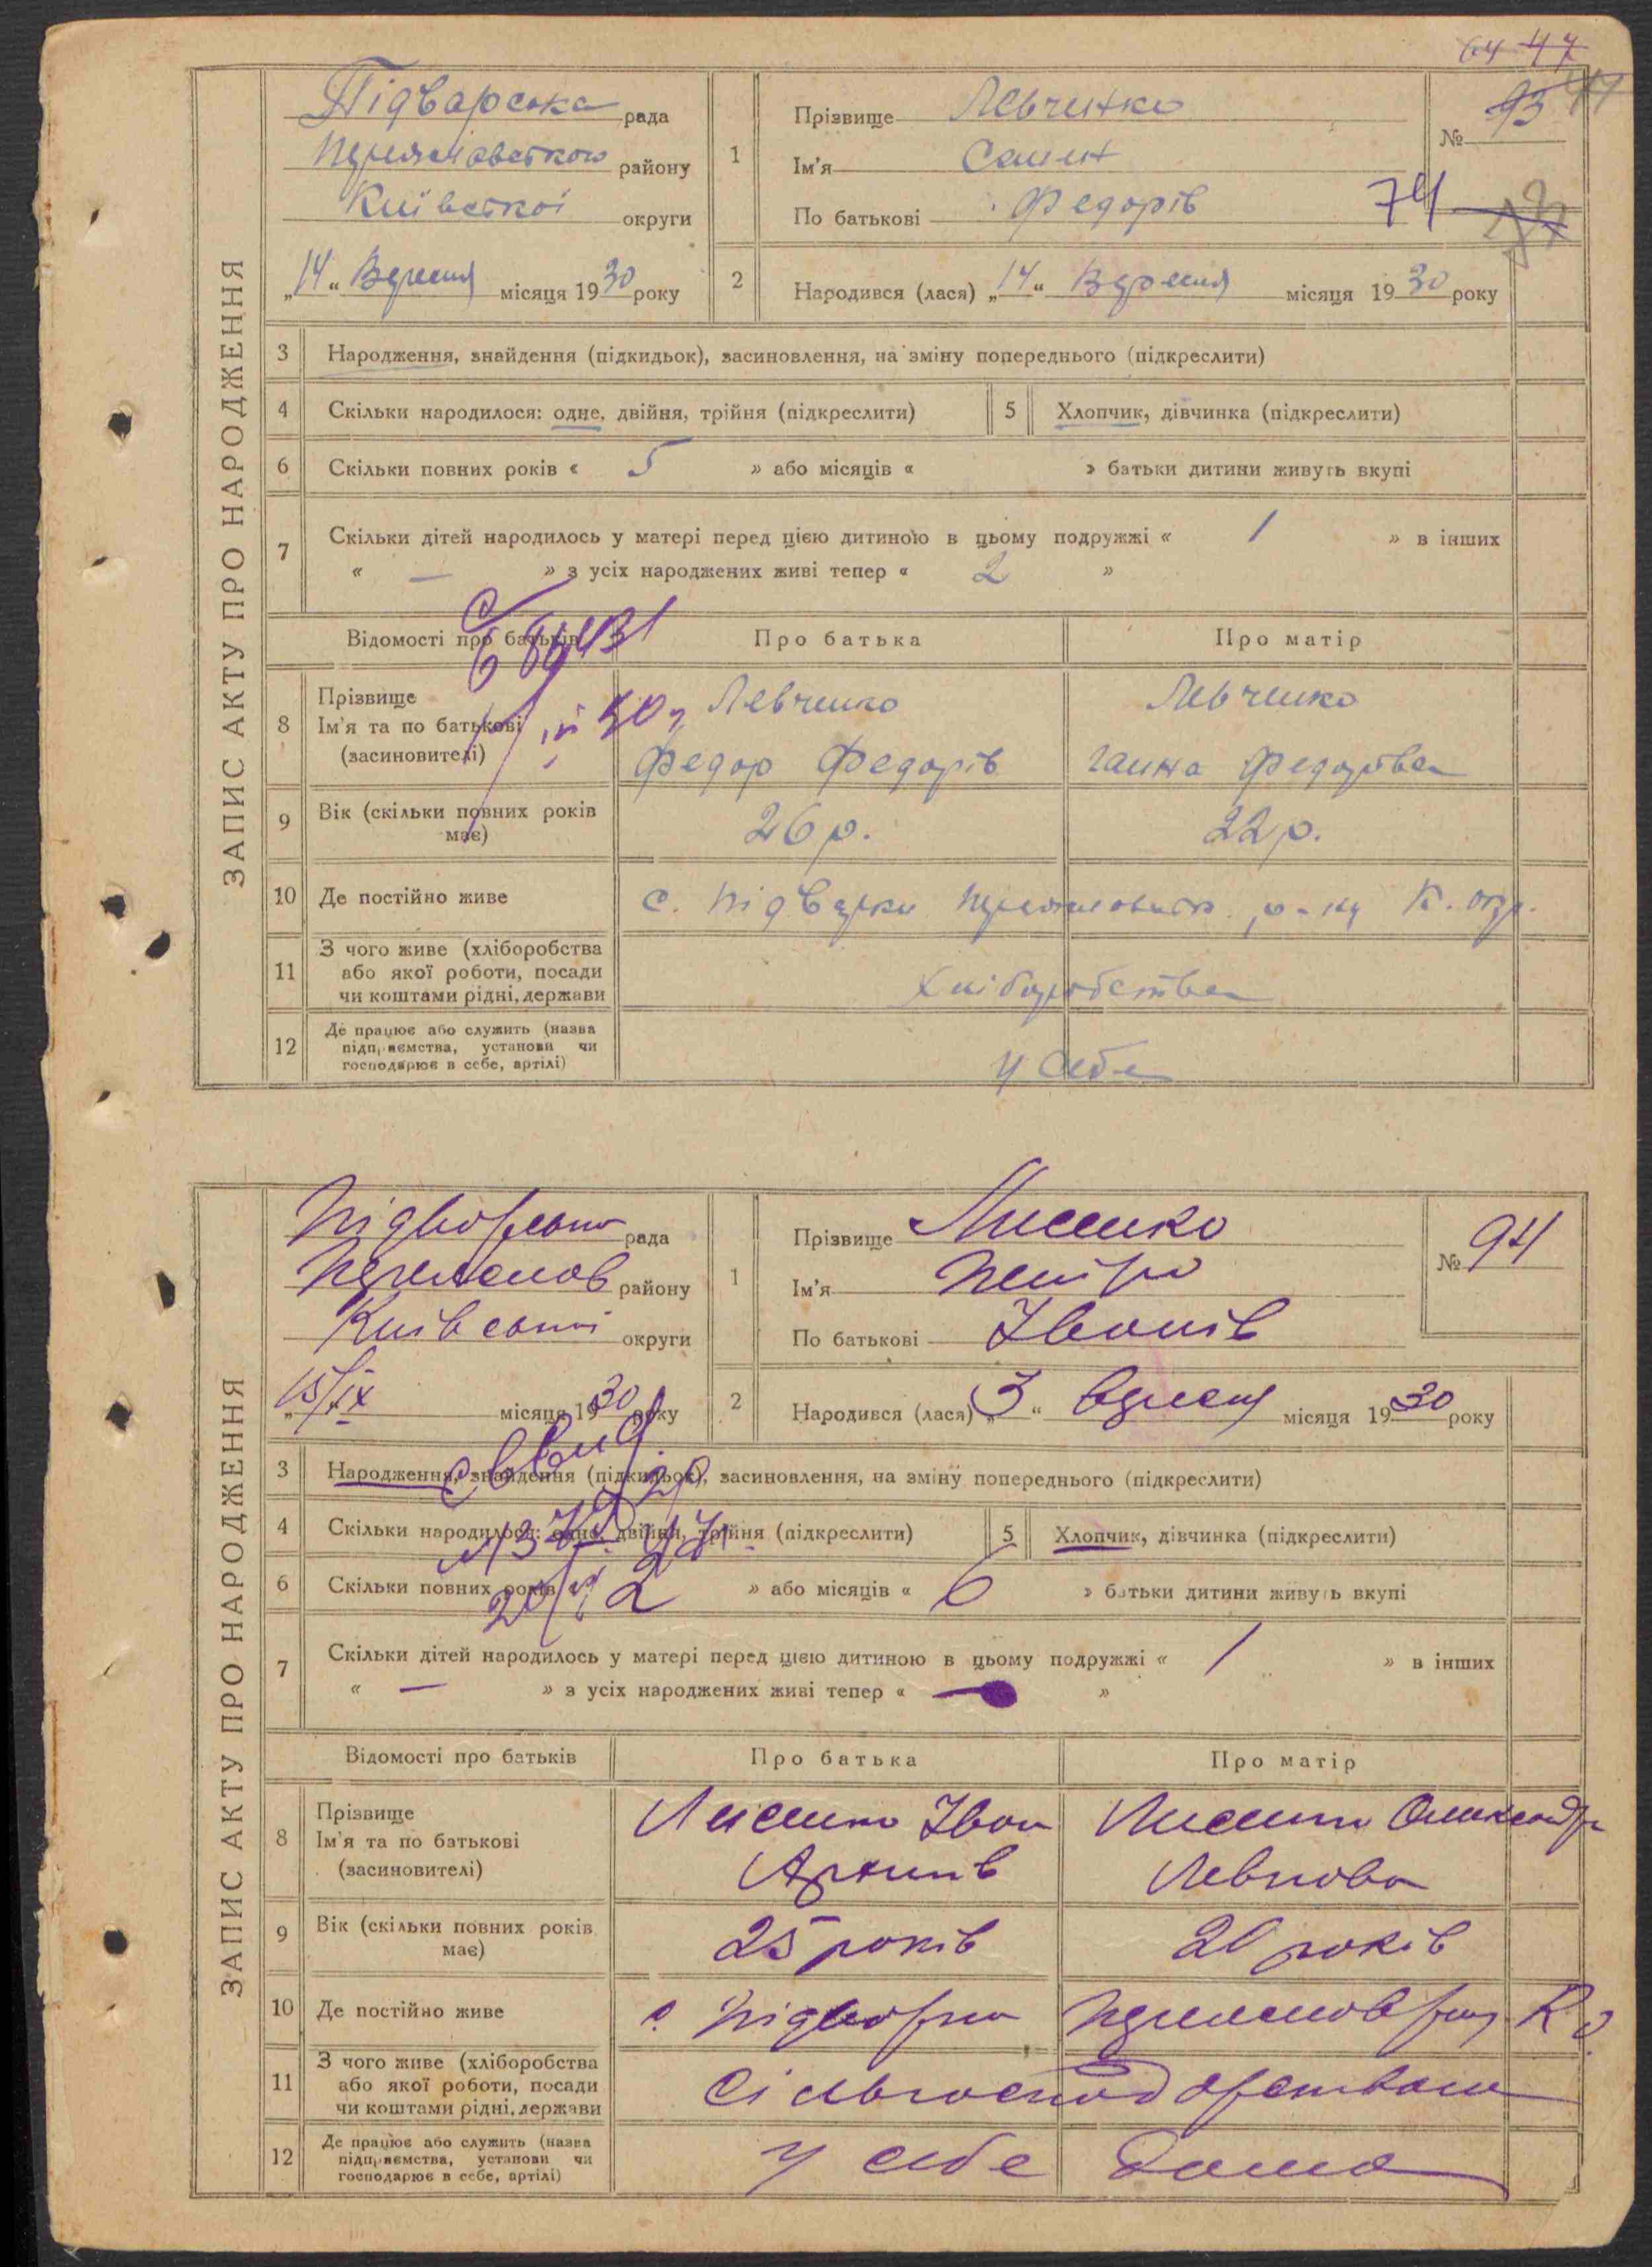 64 47
ЗАПИС АКТУ ПРО НАРОДЖЕННЯ
Підварська рада
Переяславского району
Київської округи
„14“ Вересня місяця 1930 року
1
Прізвище Левченко
Ім'я Семен
По батькові Федорів
№ 93
74
2
Народився (лася) „14“ Вересня місяця 1930 року
3 Народження, знайдення (підкидьок), засиновлення, на зміну попереднього (підкреслити)
4 Скільки народилося: одне, двійня, трійня (підкреслити)
5 Хлопчик, дівчинка (підкреслити)
6 Скільки повних років « 5 » або місяців « » батьки дитини живуть вкупі
7 Скільки дітей народилось у матері перед цією дитиною в цьому подружжі « 1 » в інших
« — » з усіх народжених живі тепер « 2 »
Відомості про батьків Про батька Про матір
8 Прізвище
Ім'я та по батькові
(засиновителі)
Левченко
Федор Федорів
Левченко
Ганна Федорівна
9 Вік (скільки повних років
має)
26 р. 22 р.
10 Де постійно живе
с. Підварки р-ну К. окр.
11 З чого живе (хліборобства
або якої роботи, посади
чи коштами рідні, держави
Хліборобства
12 Де працює або служить (назва
підприємства, установи чи
господарює в себе, артілі)
у себе
ЗАПИС АКТУ ПРО НАРОДЖЕННЯ
Підварська рада
Переяслов району
Київської округи
„15/IX місяця 1930 року
1
Прізвище Лисенко
Ім'я Петро
По батькові Іванів
№ 94
2
Народився (лася) „3“ вересня місяця 1930 року
3 Народження, знайдення (підкидьок), засиновлення, на зміну попереднього (підкреслити)
4 Скільки народилося: одне, двійня, трійня (підкреслити)
5 Хлопчик, дівчинка (підкреслити)
6 Скільки повних років 2 » або місяців « 6 » батьки дитини живуть вкупі
7 Скільки дітей народилось у матері перед цією дитиною в цьому подружжі « 1 » в інших
« — » з усіх народжених живі тепер « — »
Відомості про батьків Про батька Про матір
8 Прізвище
Ім'я та по батькові
(засиновителі)
Лисенко Іван
Архипів
Лисенко Олександра
Левкова
9 Вік (скільки повних років
має)
25 років 20 років
10 Де постійно живе
с. Підварки Переяслов р-ну К о.
11 З чого живе (хліборобства
або якої роботи, посади
чи коштами рідні, держави
Сільгосподарством
12 Де працює або служить (назва
підприємства, установи чи
господарює в себе, артілі)
у себе дома